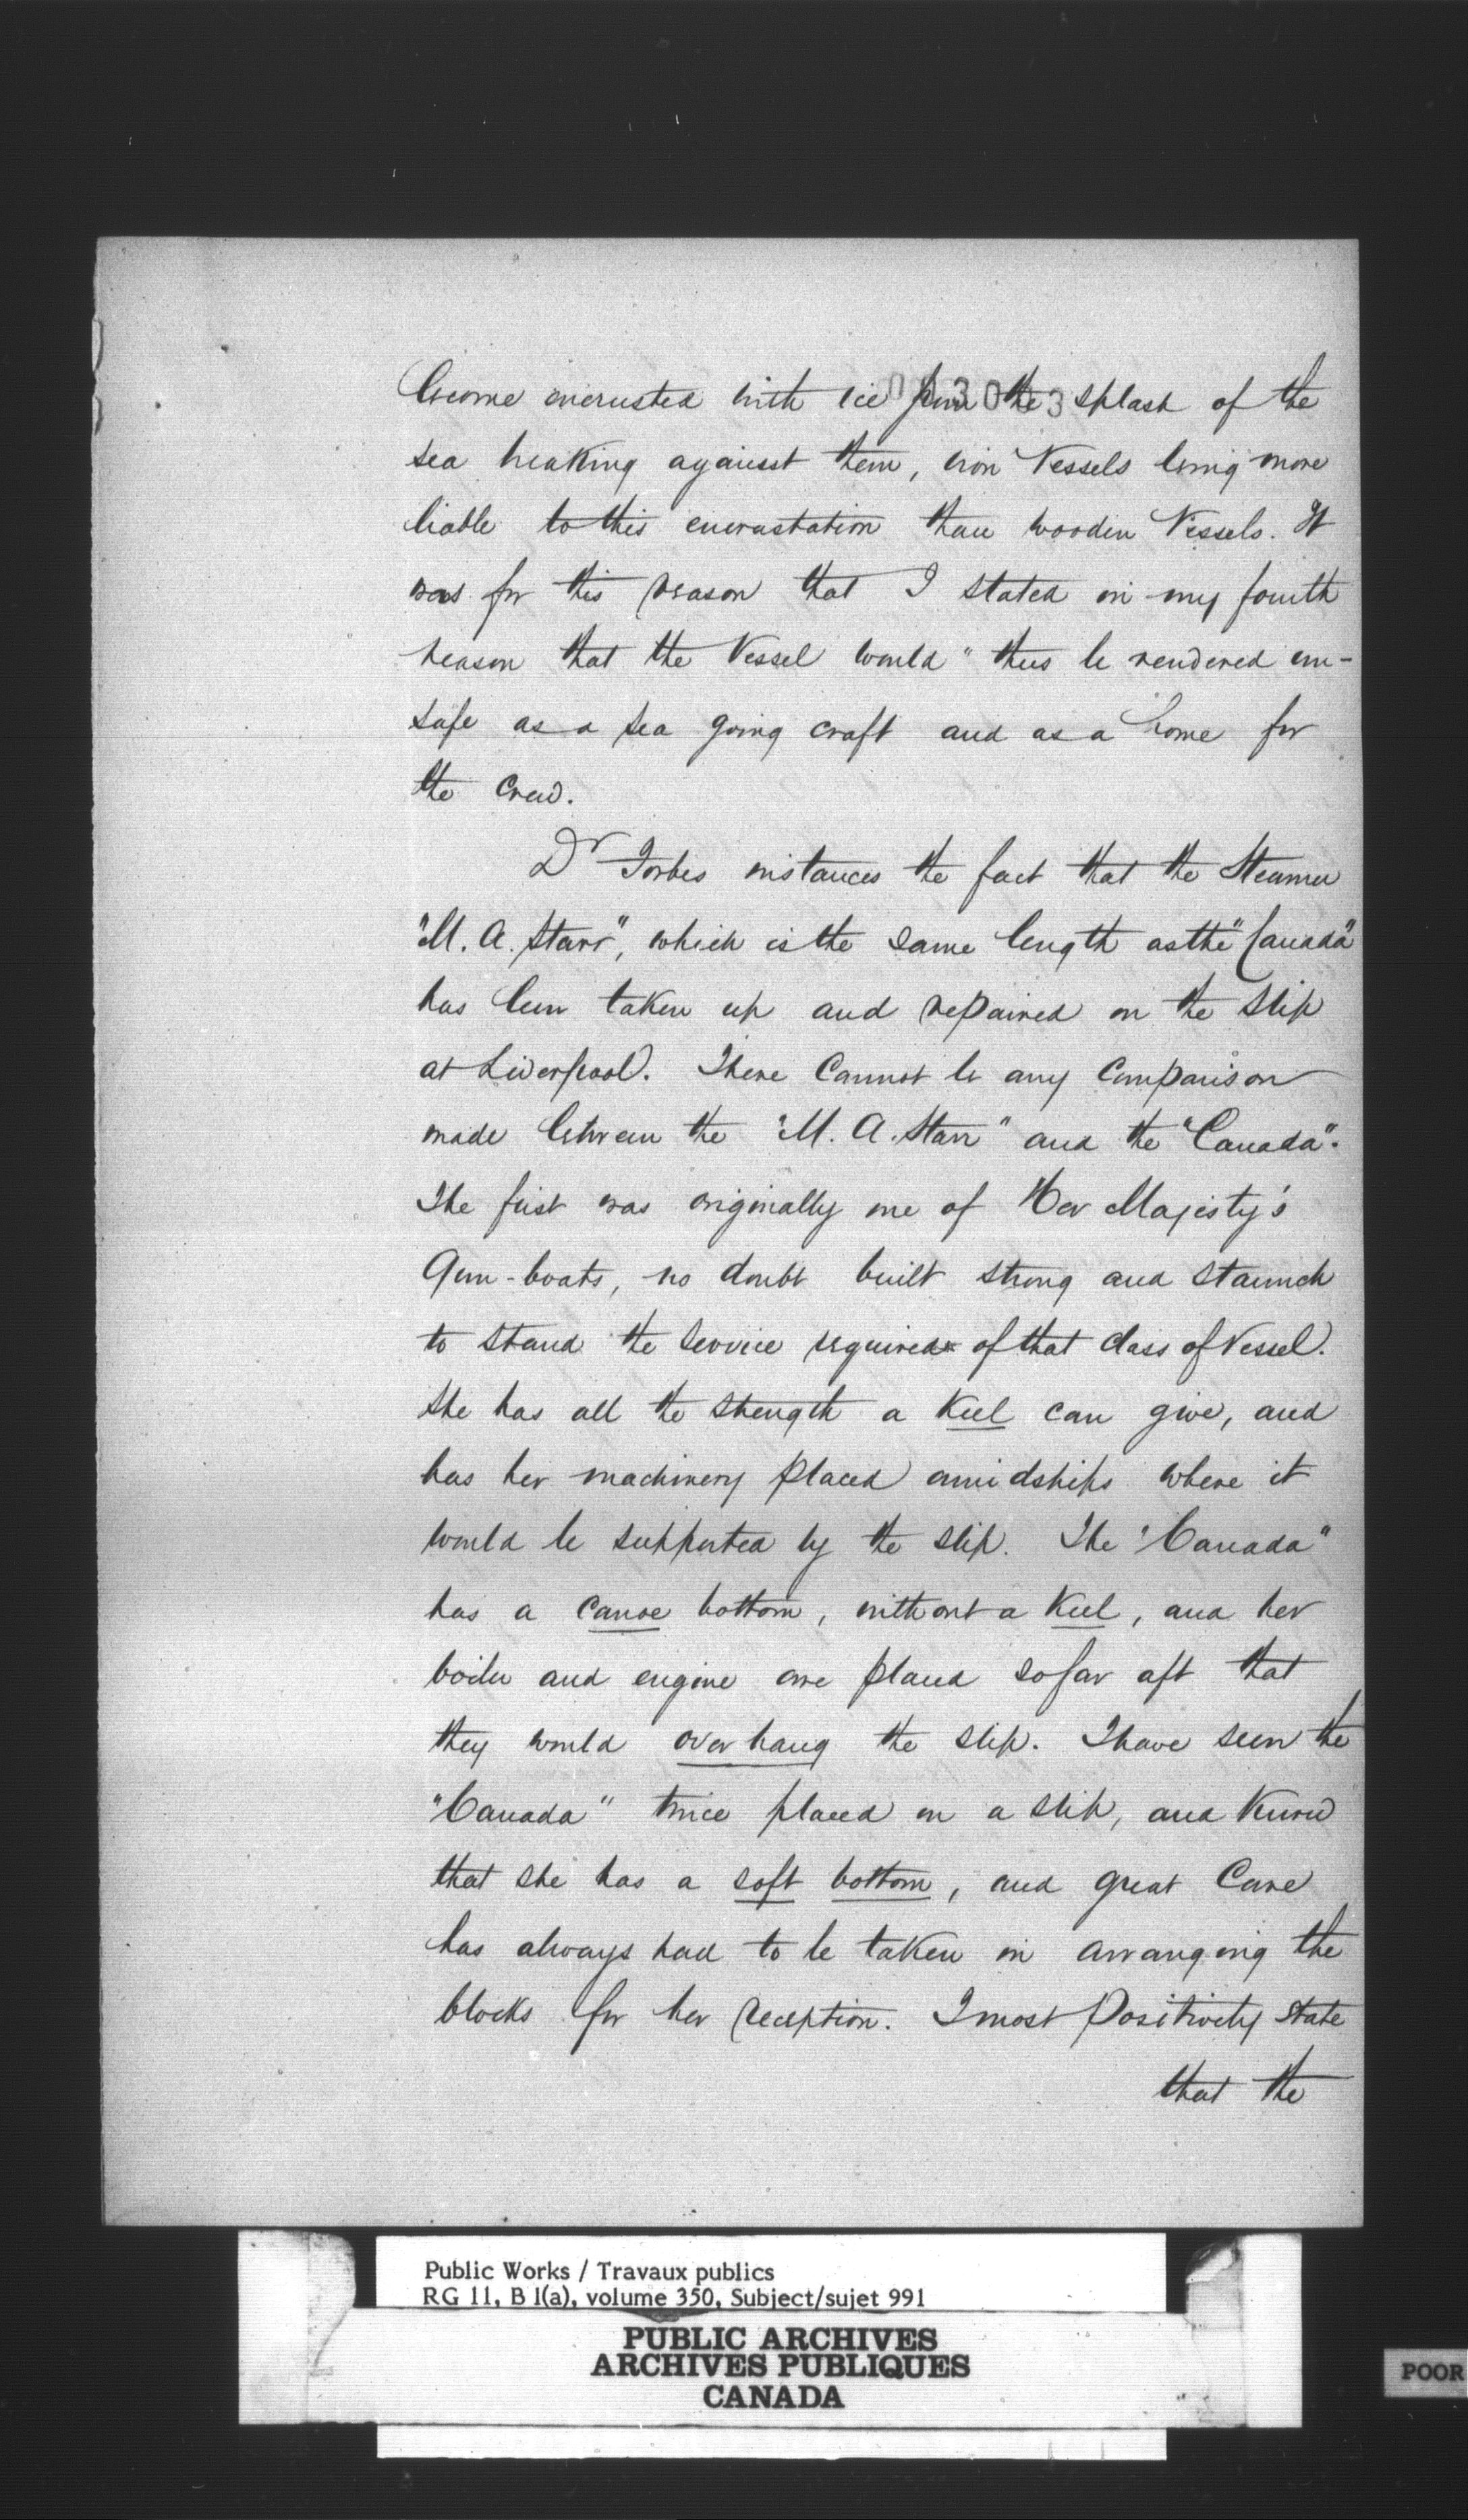 become encrusted with ice from the splash of the
sea breaking against them, iron Vessels being more
liable to this encrustation than wooden Vessels. It
was for this reason that I stated in my fourth
reason that the Vessel would "thus be rendered un-
safe as a sea going craft and as a home for
the Crew.
Dr Forbes instances the fact that the Steamer
"M. A. Starr", which is the same length as the "Canada"
has been taken up and repaired on the Slip
at Liverpool. There Cannot be any Comparison
made between the "M. A. Starr" and the "Canada".
The first was originally one of Her Majesty's
Gun-boats, no doubt built strong and staunch
to stand the Service required of that class of Vessel.
She has all the strength a Keel can give, and
has her machinery placed amidships where it
would be supported by the slip. The "Canada"
has a canoe bottom, without a Keel, and her
boiler and engine are placed so far aft that
they would overhang the slip. I have seen the
"Canada" twice placed on a slip, and Know
that she has a soft bottom, and great Care
has always had to be taken in arranging the
blocks for her reception. I most Positively state
that the
Public Works / Travaux publics
RG 11, B 1(a), volume 350, Subject/sujet 991
PUBLIC ARCHIVES
ARCHIVES PUBLIQUES
CANADA
POOR